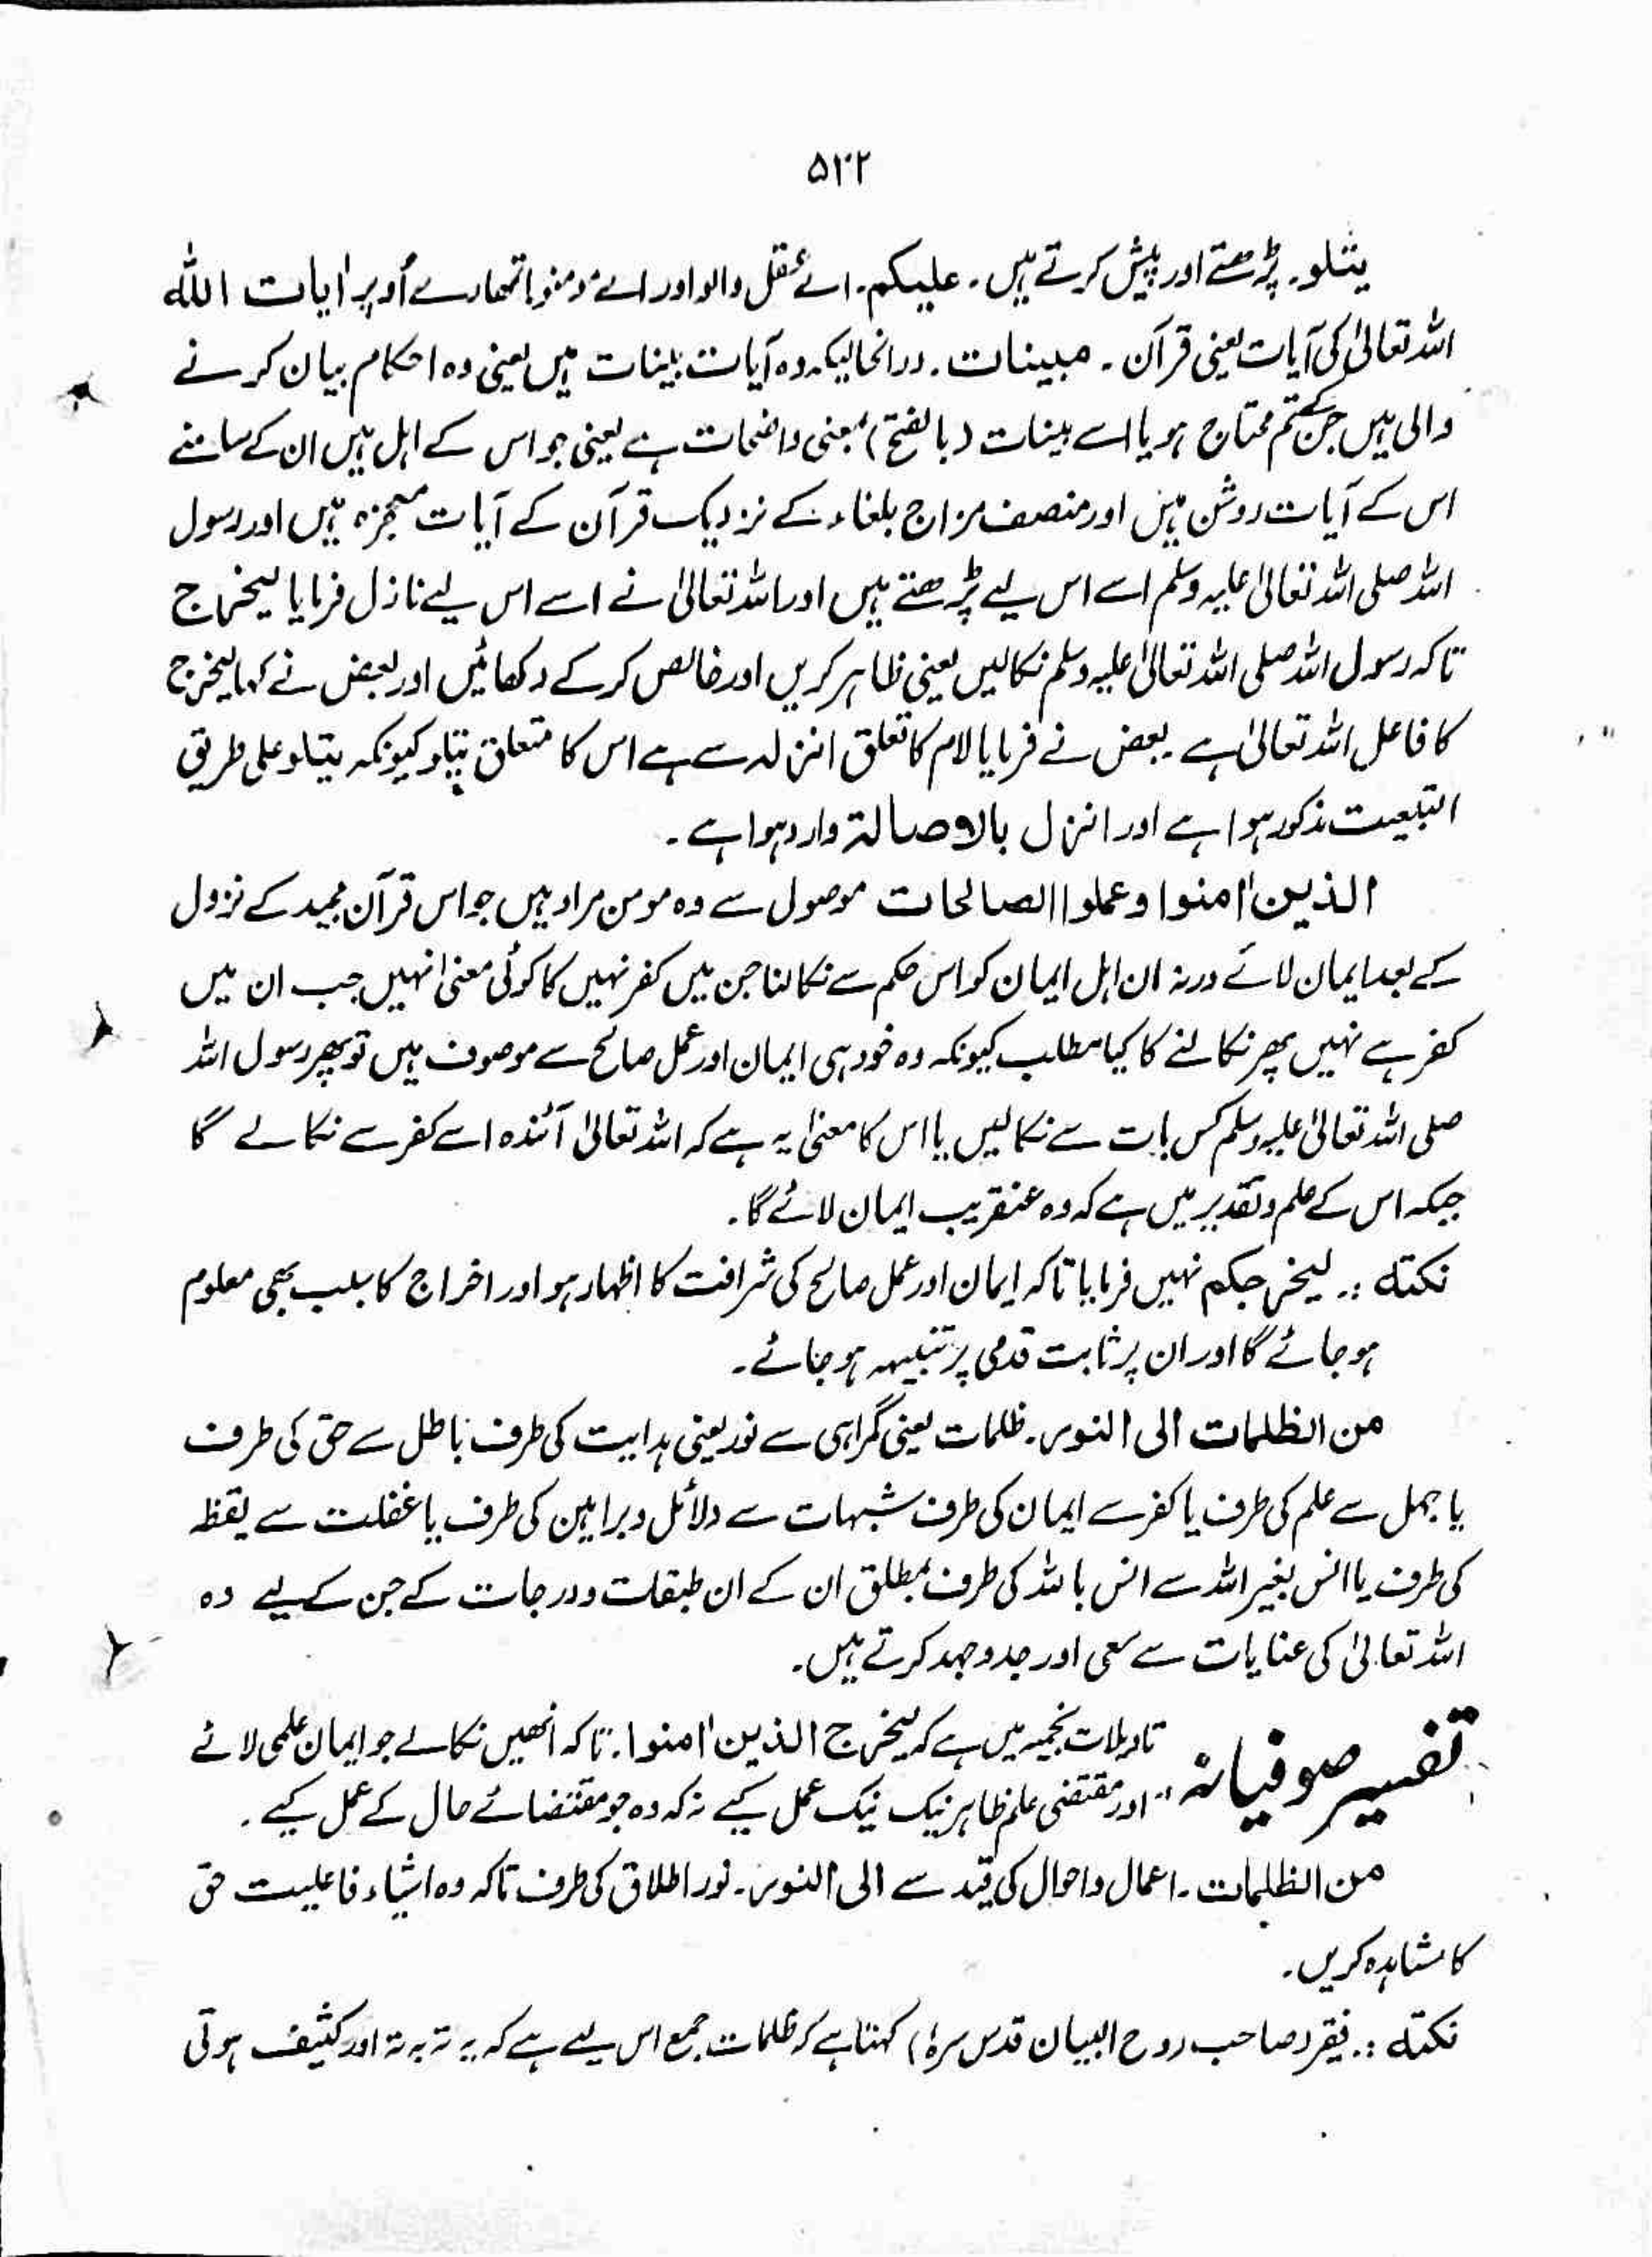 ۵۲۲
یتلو۔ پڑھتے اور پیش کرتے ہیں۔ علیکم۔ اے عقل والو اور اے مومنو! تمھارے اُوپر اٰیات اللہ
اللہ تعالیٰ کی آیات یعنی قرآن۔ مبینات۔ درانحالیکہ وہ آیات بینات ہیں یعنی وہ احکام بیان کرنے
والی ہیں جن کے تم محتاج ہو یا اسے بینات (بالفتح) بمعنی واضحات ہے یعنی جو اس کے اہل ہیں ان کے سامنے
اس کے آیات روشن ہیں اور منصف مزاج بلغاء کے نزدیک قرآن کے آیات معجزہ ہیں اور رسول
اللہ صلی اللہ تعالیٰ علیہ وسلم اسے اس لیے پڑھتے ہیں اور اللہ تعالیٰ نے اسے اس لیے نازل فرمایا لیخرج
تاکہ رسول اللہ صلی اللہ تعالیٰ علیہ وسلم نکالیں یعنی ظاہر کریں اور خالص کر کے دکھائیں اور بعض نے کہا لیخرج
کا فاعل اللہ تعالیٰ ہے۔ بعض نے فرمایا لام کا تعلق انزلہ سے ہے اس کا متعلق یتلو کیونکہ یتلو علی طریق
التبعیت مذکور ہوا ہے اور انزل بالاصالۃ وارد ہوا ہے۔
الذین اٰمنوا وعملوا الصالحات موصول سے وہ مومن مراد ہیں جو اس قرآن مجید کے نزول
کے بعد ایمان لائے ورنہ ان اہل ایمان کو اس حکم سے نکالنا جن میں کفر نہیں کا کوئی معنیٰ نہیں جب ان میں
کفر ہے نہیں پھر نکالنے کا کیا مطلب کیونکہ وہ خود ہی ایمان اور عمل صالح سے موصوف ہیں تو پھر رسول اللہ
صلی اللہ تعالیٰ علیہ وسلم کس بات سے نکالیں یا اس کا معنیٰ یہ ہے کہ اللہ تعالیٰ آئندہ اسے کفر سے نکالے گا
جبکہ اس کے علم و تقدیر میں ہے کہ وہ عنقریب ایمان لائے گا۔
نکتہ :۔ لیخرجکم نہیں فرمایا تاکہ ایمان اور عمل صالح کی شرافت کا اظہار ہو اور اخراج کا سبب بھی معلوم
ہو جائے گا اور ان پر ثابت قدمی پر تنبیہہ ہو جائے۔
من الظلمات الی النور۔ ظلمات یعنی گمراہی سے نور یعنی ہدایت کی طرف باطل سے حق کی طرف
یا جہل سے علم کی طرف یا کفر سے ایمان کی طرف شبہات سے دلائل و براہین کی طرف یا غفلت سے یقظہ
کی طرف یا انس بغیر اللہ سے انس باللہ کی طرف بمطلق ان کے ان طبقات و درجات کے جن کے لیے وہ
اللہ تعالیٰ کی عنایات سے سعی اور جدوجہد کرتے ہیں۔
تفسیر صوفیانہ تاویلات نجمیہ میں ہے کہ لیخرج الذین اٰمنوا۔ تاکہ انھیں نکالے جو ایمان علمی لائے
اور مقتضی علم ظاہر نیک نیک عمل کیے نہ کہ وہ جو مقتضائے حال کے عمل کیے۔
من الظلمات۔ اعمال و احوال کی قید سے الی النور۔ نور اطلاق کی طرف تاکہ وہ اشیاء فاعلیت حق
کا مشاہدہ کریں۔
نکتہ :۔ فقیر (صاحب روح البیان قدس سرہٗ) کہتا ہے کہ ظلمات جمع اس لیے ہے کہ یہ تہ بہ تہ اور کثیف ہوتی